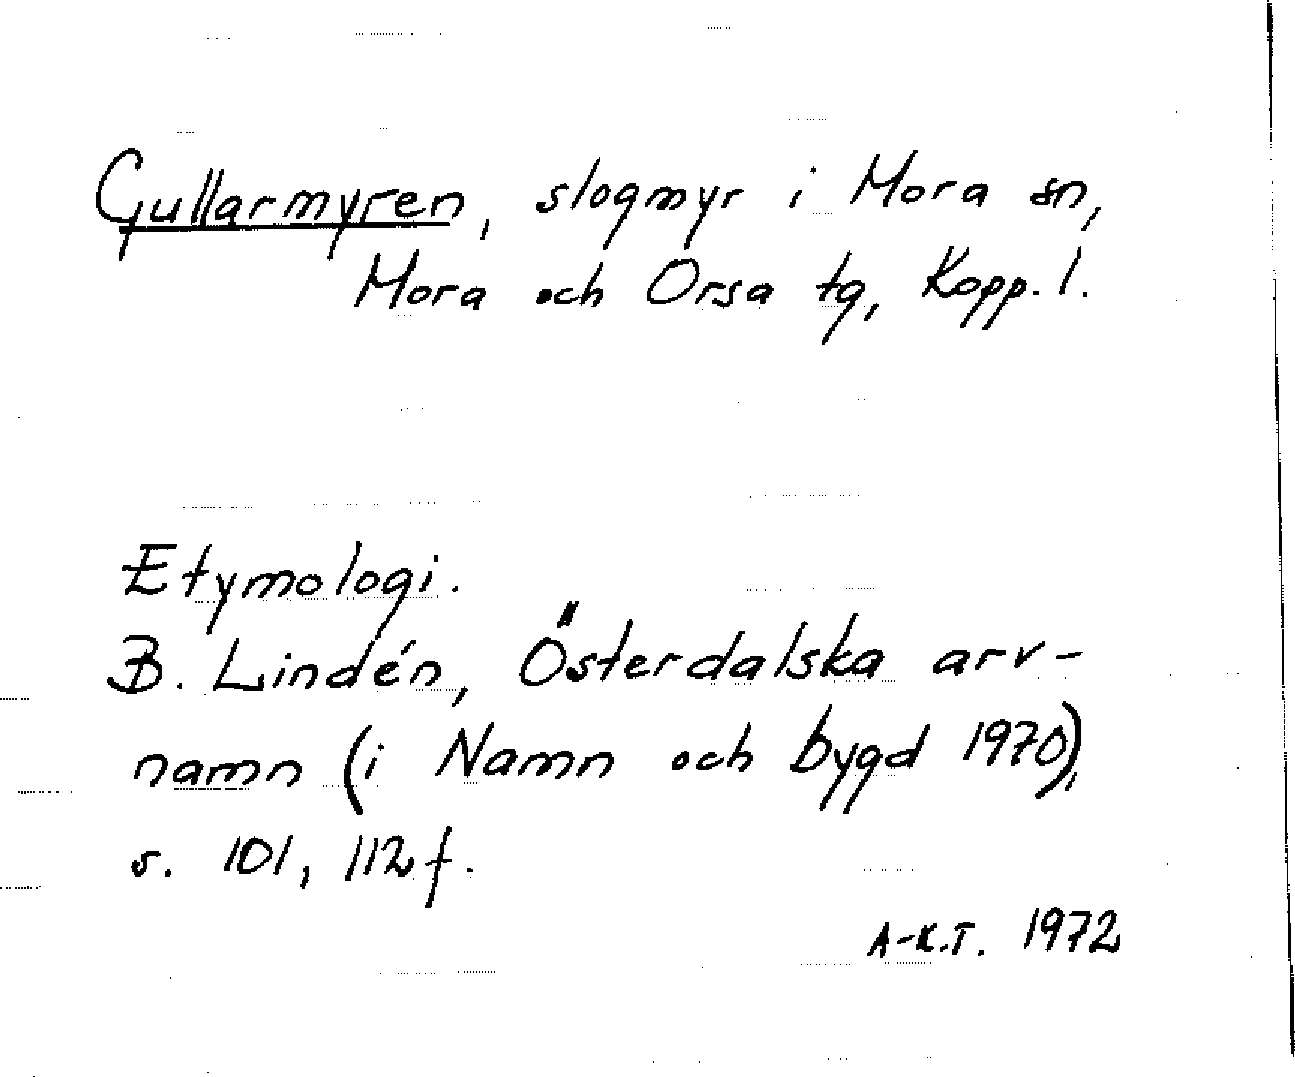 Gullarmyren, slogmyr i Mora sn,
Mora och Orsa tg, Kopp. l.
Etymologi.
B. Lindén, Österdalska arv-
namn (i Namn och bygd 1970),
s. 101, 112 f.
A-K.T. 1972